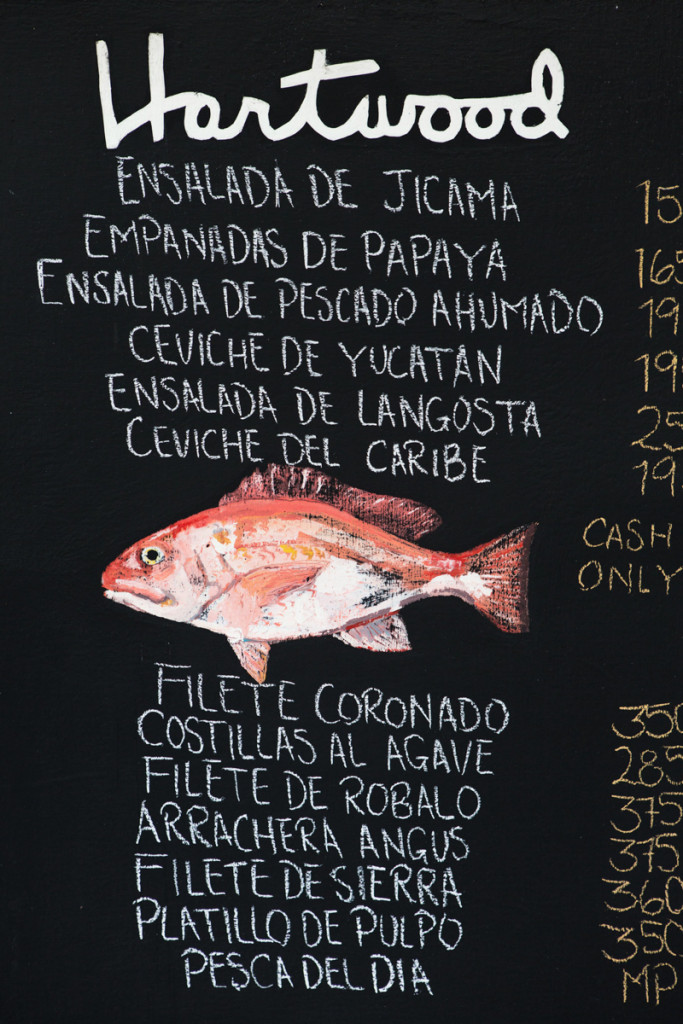 Hartwood
ENSALADA DE JICAMA
EMPANADAS DE PAPAYA 165
ENSALADA DE PESCADO AHUMADO
CEVICHE DE YUCATÁN
ENSALADA DE LANGOSTA
CEVICHE DEL CARIBE
CASH
ONLY
FILETE CORONADO 350
COSTILLAS AL AGAVE 285
FILETE DE ROBALO 375
ARRACHERA ANGUS 375
FILETE DE SIERRA 360
PLATILLO DE PULPO 350
PESCA DEL DIA MP